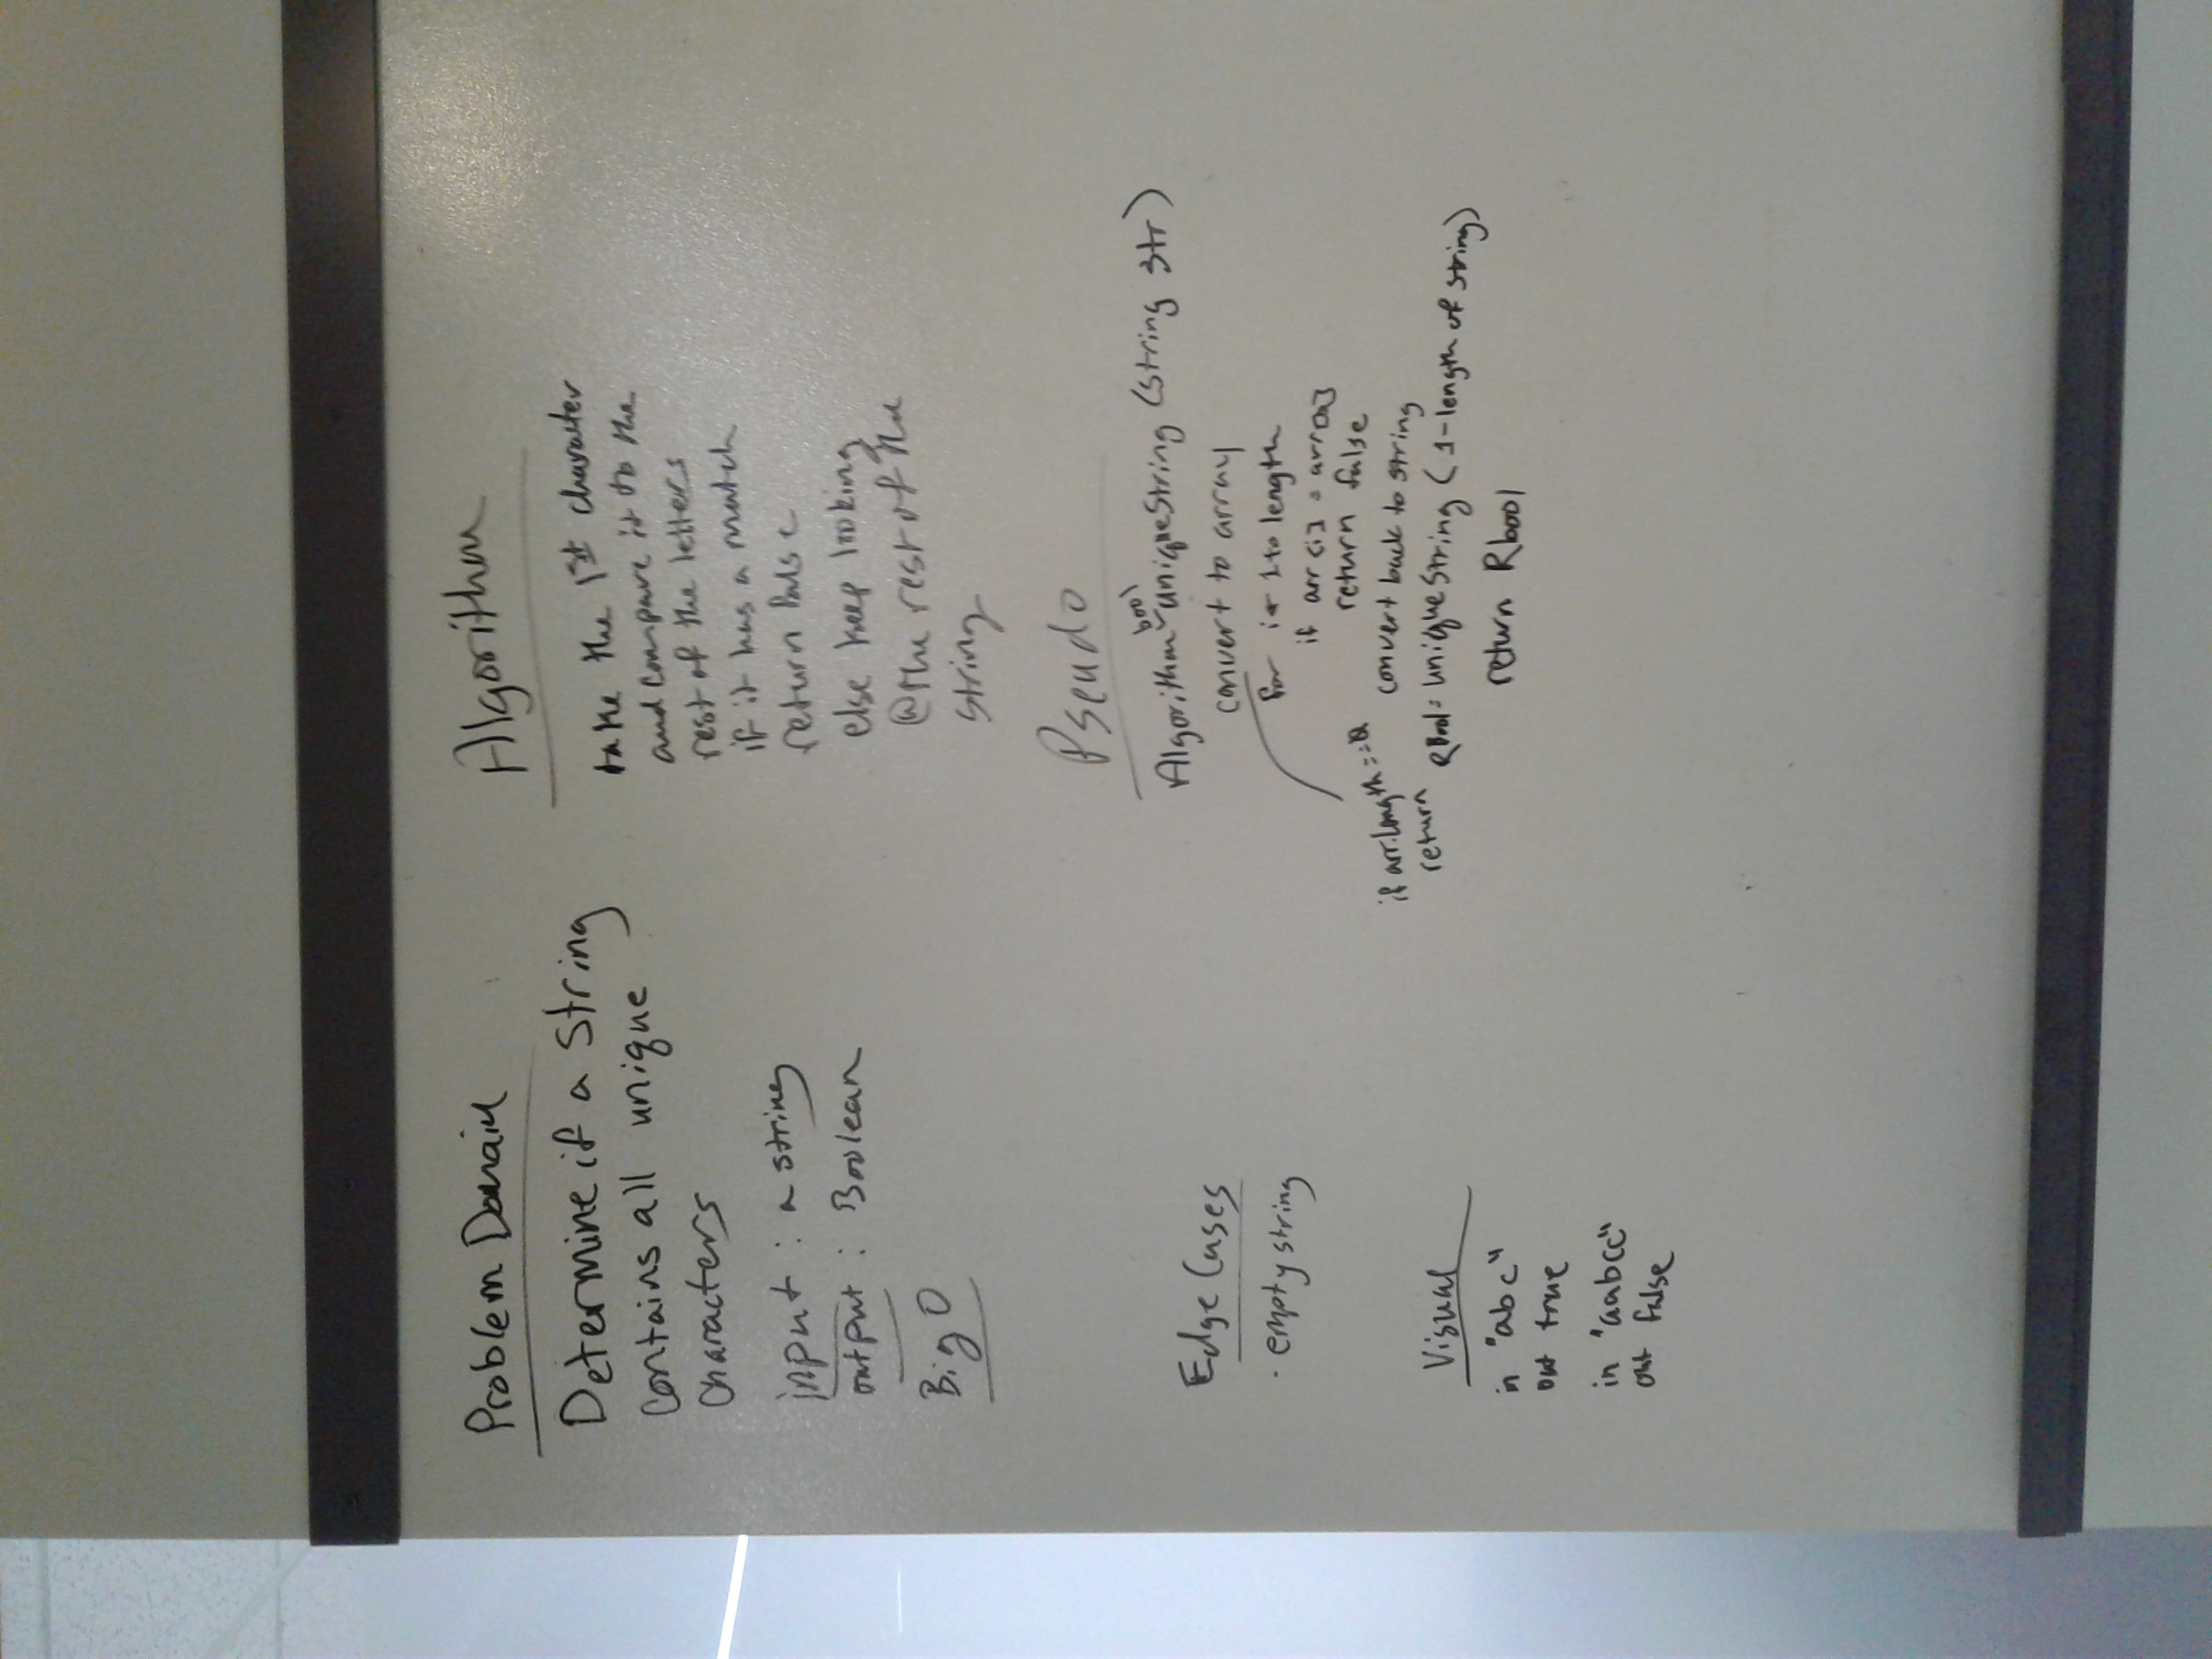 Problem Domain
Determine if a String
contains all unique
characters
input : a string
output : Boolean
Big O
Edge Cases
· empty string
Visual
in "abc"
out true
in "aabcc"
out false
Algorithm
take the 1st character
and compare it to the
rest of the letters
if it has a match
return false
else keep looking
@ the rest of the
string
Pseudo
Algorithm bool uniqueString (string str)
convert to array
if arr.length == 0
return
for i ← 1 to length
if arr[i] = arr[0]
return false
convert back to string
RBool = uniqueString (1-length of string)
return Rbool